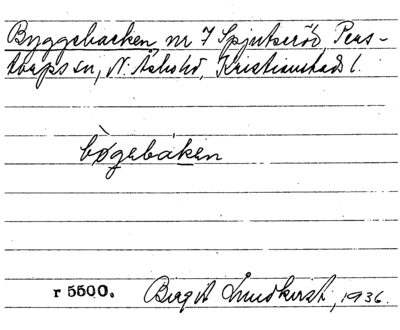 Byggebacken, nr 7 Spjutseröd, Pers-
torps sn, N. Åsbo hd, Kristianstads l.
bògebáken
r 5500. Birgit Lundkvist, 1936.